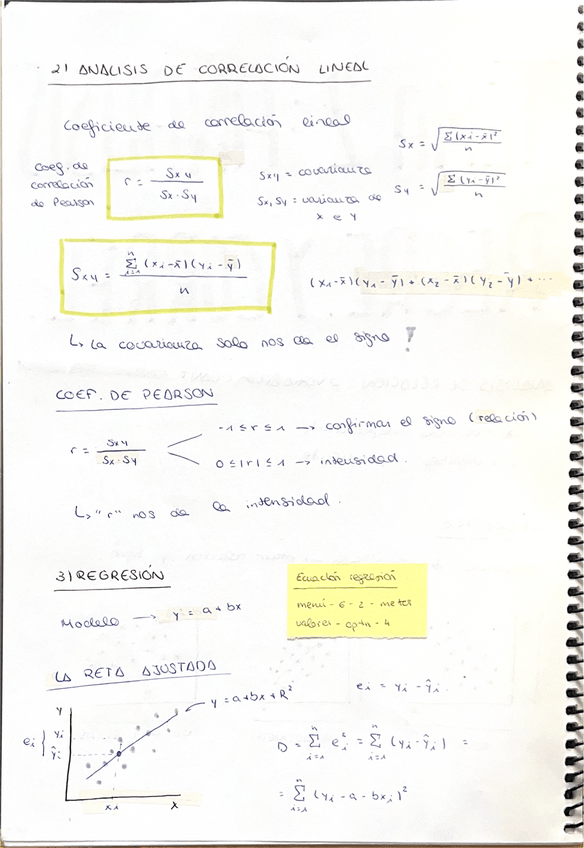 2) ANALISIS DE CORRELACIÓN LINEAL
Coeficiente de correlación lineal
Coef. de correlación de Pearson
r = Sxy / Sx·Sy
Sxy = covarianza
Sx, Sy = varianza de x e y
Sx = √(Σ(xi-x̄)² / n)
Sy = √(Σ(yi-ȳ)² / n)
Sxy = Σ(i=1, n) (xi-x̄)(yi-ȳ) / n
(x1-x̄)(y1-ȳ) + (x2-x̄)(y2-ȳ) + ...
↳ La covarianza solo nos da el signo !
COEF. DE PEARSON
r = Sxy / Sx·Sy
-1 ≤ r ≤ 1 → confirmar el signo (relación)
0 ≤ |r| ≤ 1 → intensidad.
↳ "r" nos da la intensidad.
3) REGRESIÓN
Modelo → yi = a + bx
Ecuación regresión
menú - 6 - 2 - meter
valores - optn - 4
LA RETA AJUSTADA
y = a + bx + R²
Y
ei { yi
ŷi
xi
X
ei = yi - ŷi
D = Σ(i=1, n) ei² = Σ(i=1, n) (yi - ŷi) =
= Σ(i=1, n) (yi - a - bxi)²